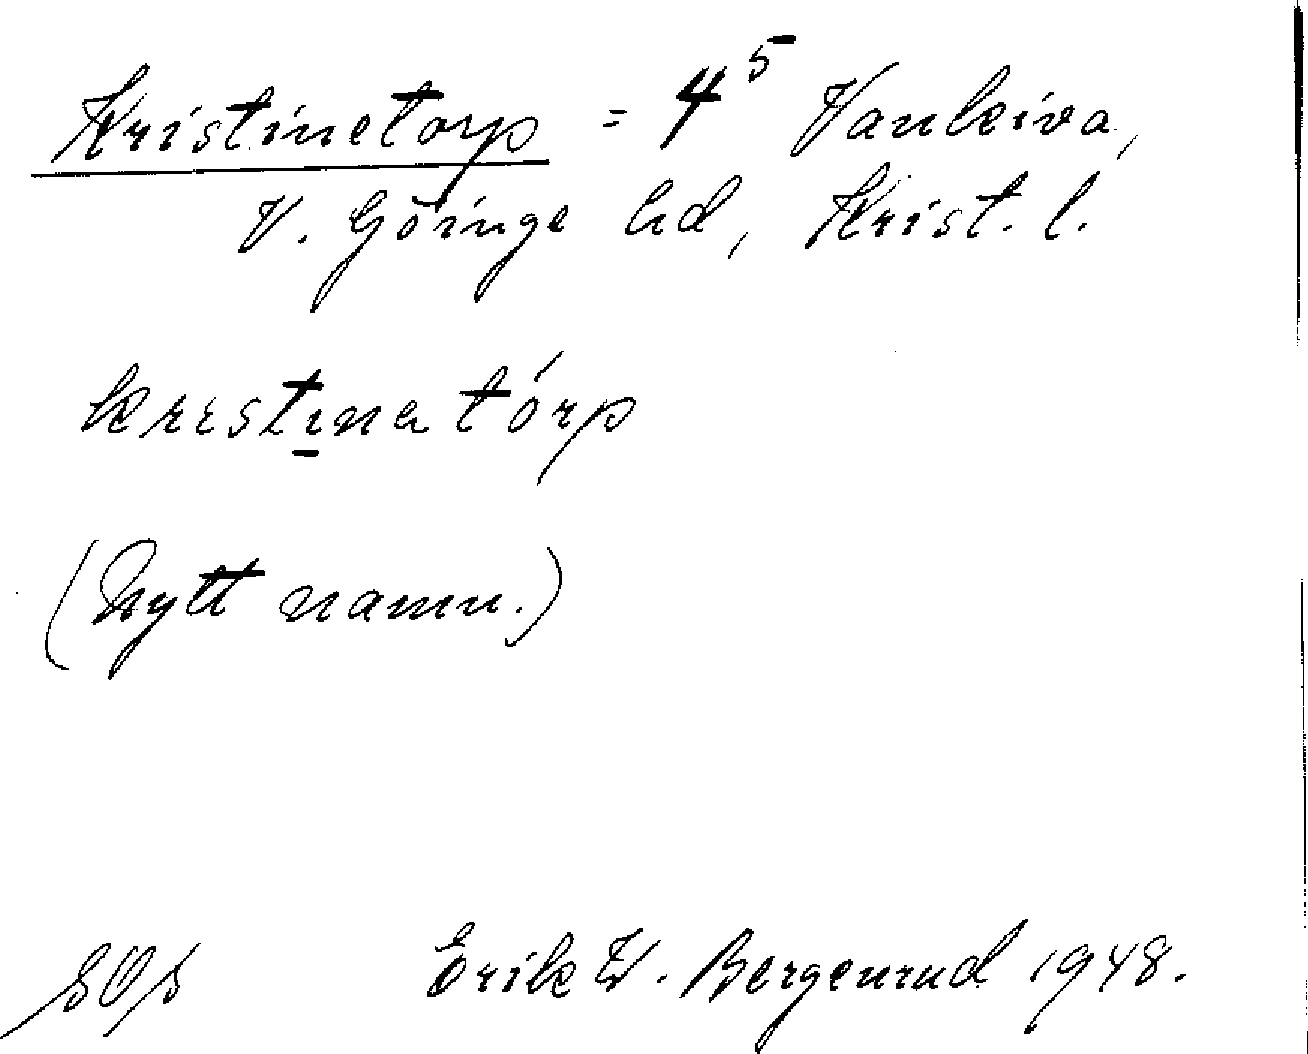 Kristinetorp = 4⁵ Vankiva,
V. Göinge hd, Krist. l.
krıstı̱na tórp
(Nytt namn.)
SOS Erik W. Bergenrud 1948.